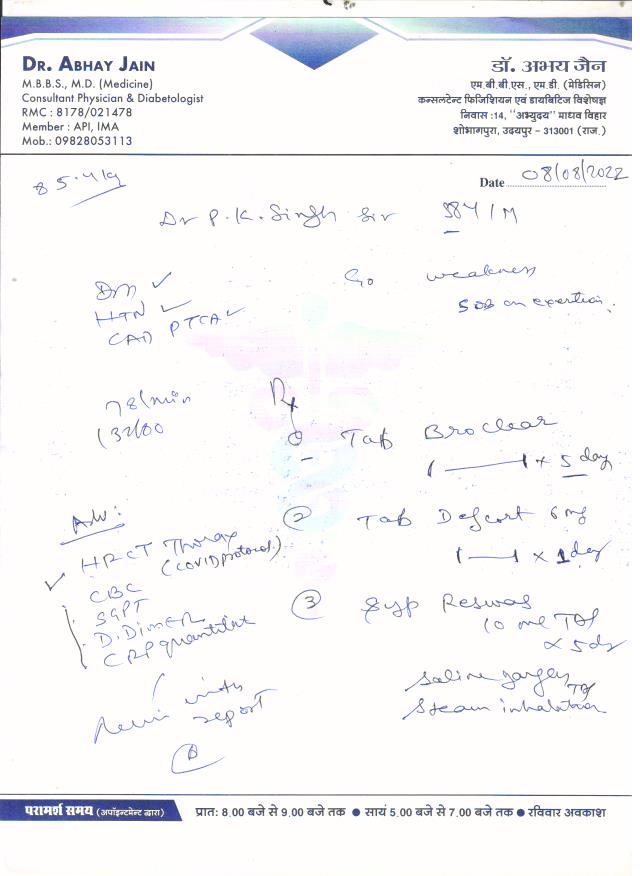 DR. ABHAY JAIN
M.B.B.S., M.D. (Medicine)
Consultant Physician & Diabetologist
RMC : 8178/021478
Member : API, IMA
Mob.: 09828053113
डॉ. अभय जैन
एम.बी.बी.एस., एम.डी. (मेडिसिन)
कन्सलटेन्ट फिजिशियन एवं डायबिटिज विशेषज्ञ
निवास :14, "अभ्युदय" माधव विहार
शोभागपुरा, उदयपुर - 313001 (राज.)
85.4kg
Date 08/08/2022
Dr P.K. Singh Sir 58Y/M
DM ✓
HTN ✓
CAD PTCA ✓
weakness
SOB on exertion.
78/min
132/80
Rx
Tab Broclear
1 — 1 x 5 day
② Tab Defcort 6 mg
1 — 1 x 1 day
③ Syp Reswas
10 ml
x 5 d
Saline gargles
Steam inhalation
Adv:
✓ HRCT Thorax
(COVID protocol)
CBC
SGPT
D.Dimer
CRP quantitat
with
report
परामर्श समय (अपॉइन्टमेन्ट द्वारा)
प्रात: 8.00 बजे से 9.00 बजे तक ● सायं 5.00 बजे से 7.00 बजे तक ● रविवार अवकाश